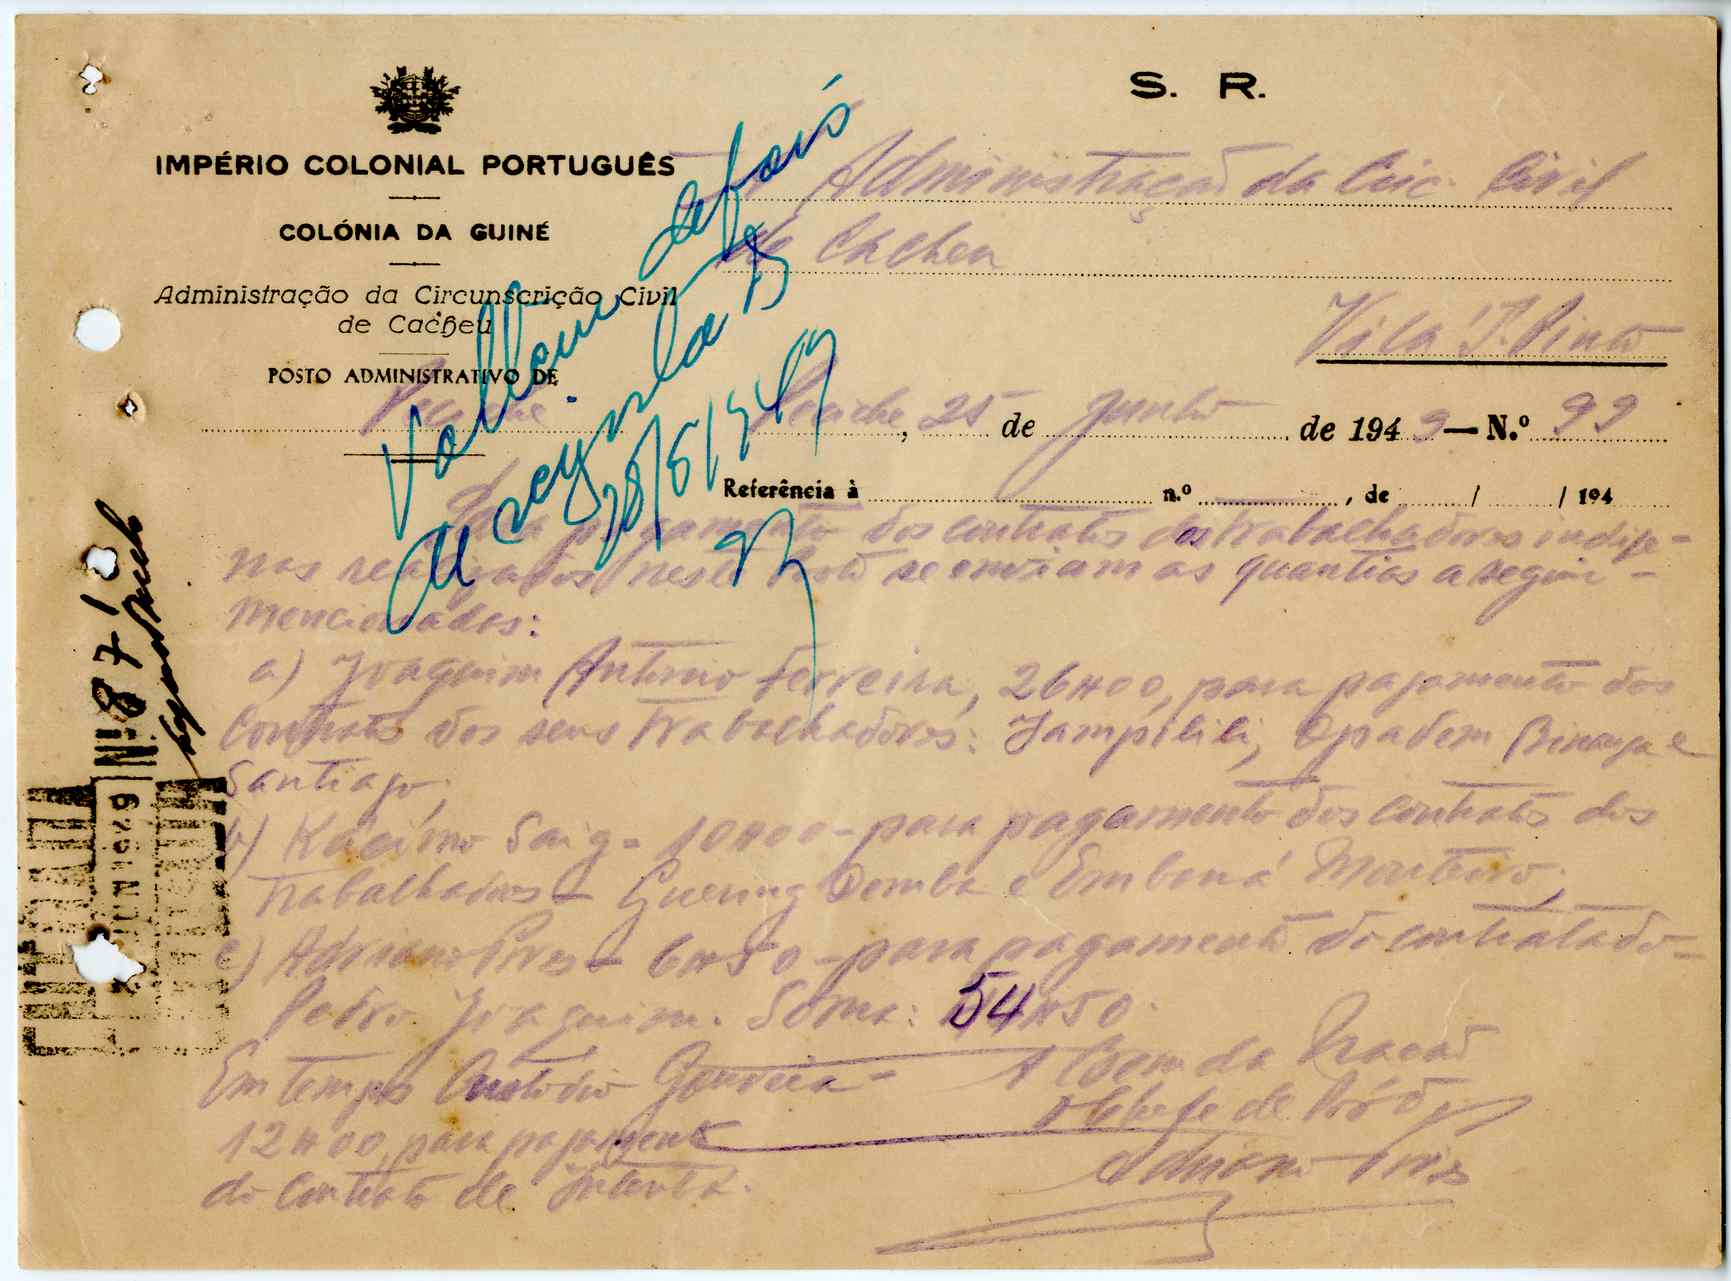 S. R.
IMPÉRIO COLONIAL PORTUGUÊS
COLÓNIA DA GUINÉ
Administração da Circunscrição Civil
de Cacheu
POSTO ADMINISTRATIVO DE
Pecixe
À Administração da Circ. Civil
de Cacheu
Vila T. Pinto
Pecixe, 25 de Junho de 1949 — N.º 99
Referência à n.º , de / / 194
Voltem depois
de
28/6/1949
Para pagamento dos contratos dos trabalhadores indije-
nas realizados neste Posto se enviam as quantias a seguir
mencionadas:
a) Joaquim António Ferreira, 26$00, para pagamento dos
contratos dos seus trabalhadores: Jampilili, Opadem Binanga e
Santiago;
b) Kacimo Saig - 10$00 - para pagamento dos contratos dos
trabalhadores - Quering Demba e Embaná Monteiro;
c) Adriano Pires - 6$50 - para pagamento do contratado -
Pedro Joaquim. Soma: 54$50.
Em tempo Custódio Gouveia -
12$00, para pagamento
do contrato de
A Bem da Nação
O Chefe de Pôsto
Adriano Pires
Nº 871